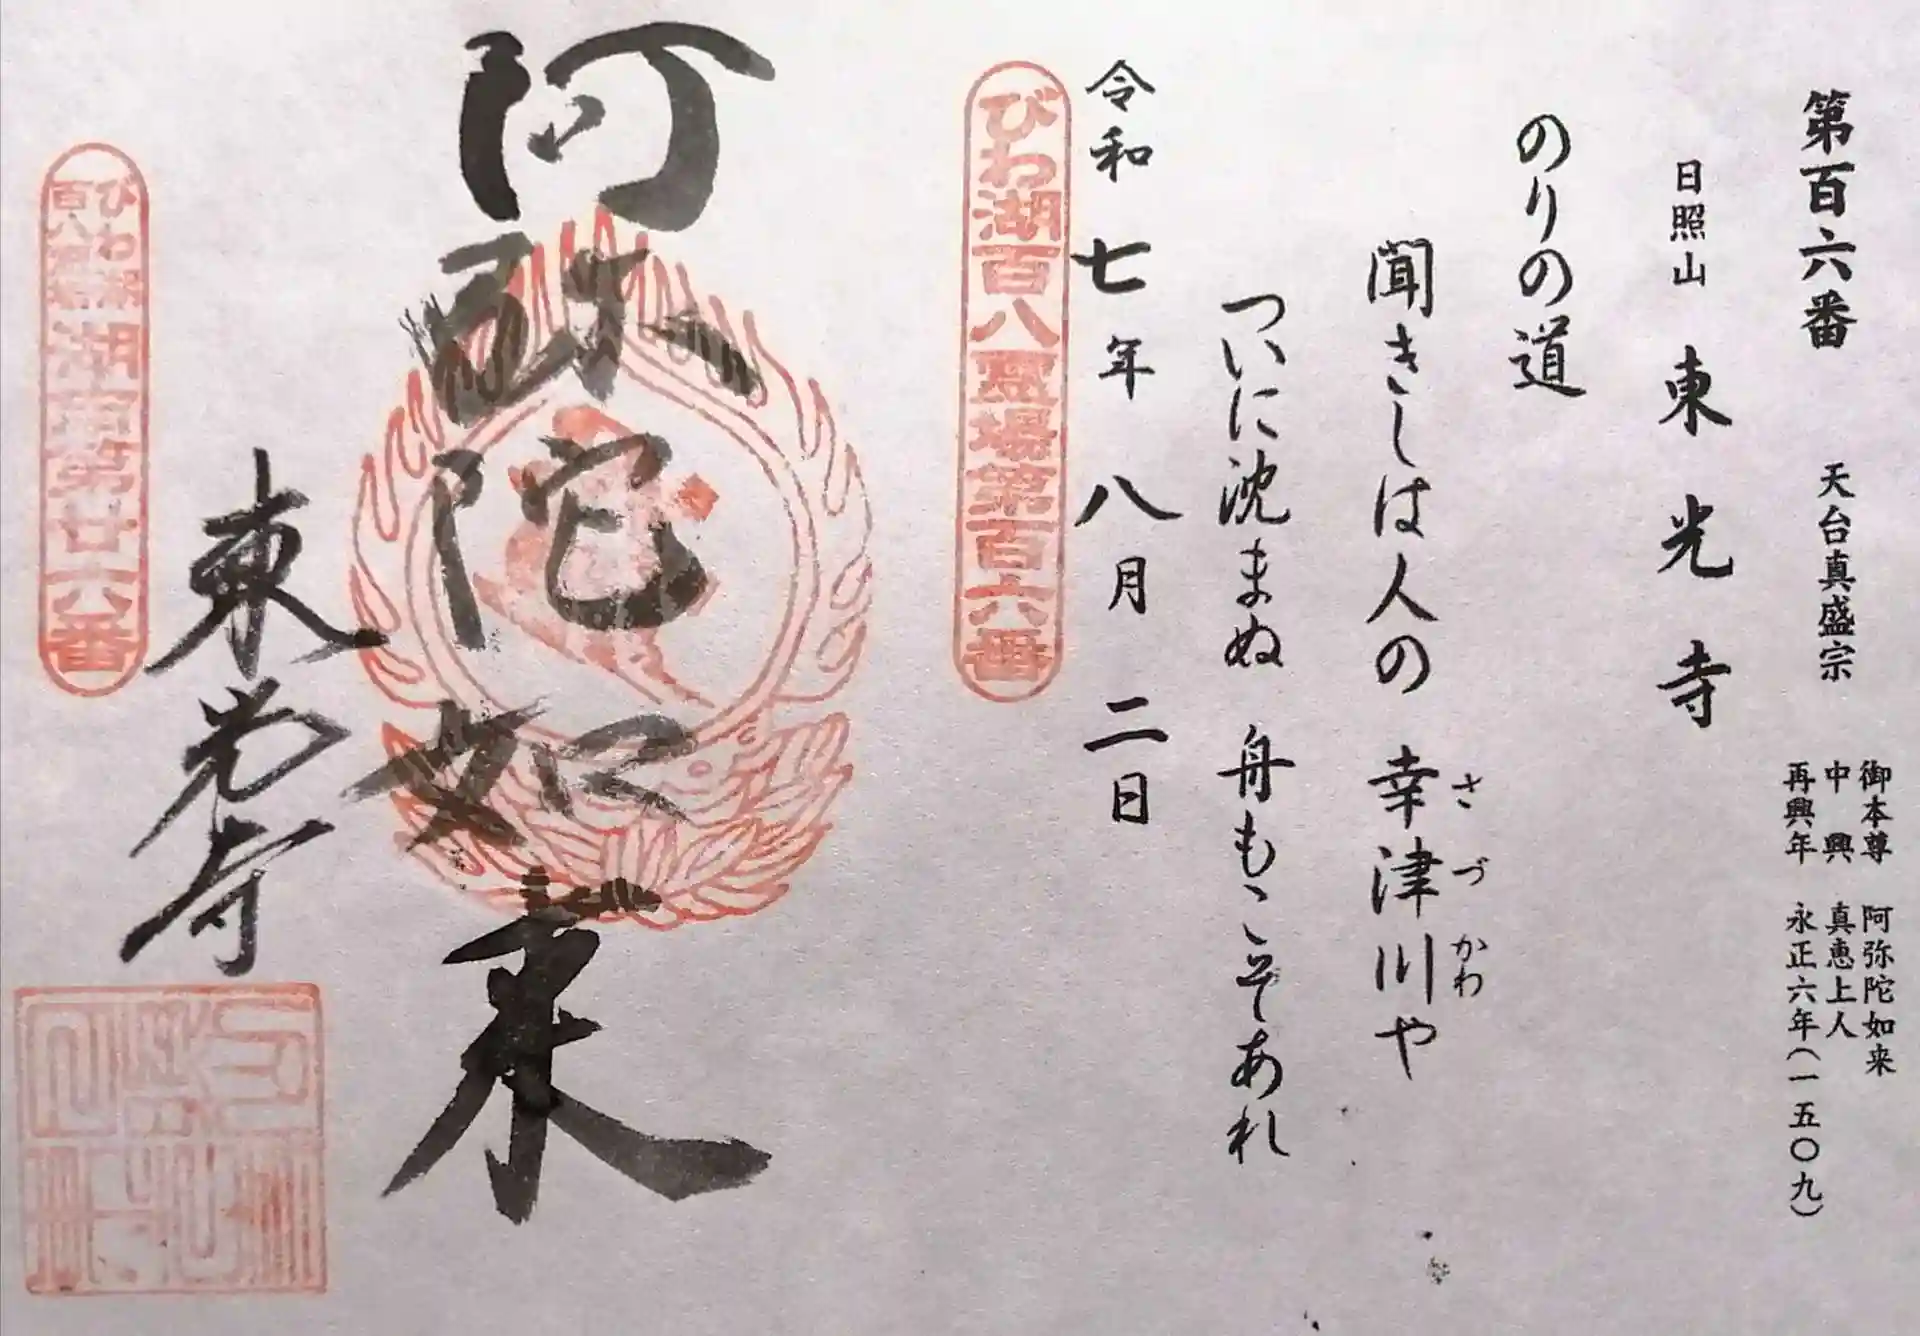 第百六番　天台真盛宗
御本尊　阿弥陀如来
中　興　真恵上人
再興年　永正六年（一五〇九）
日照山　東光寺
のりの道
聞きしは人の　幸津川や
さづかわ
ついに沈まぬ　舟もこそあれ
令和七年八月二日
びわ湖百八霊場第百六番
阿弥陀如来
東光寺
びわ湖
百八霊場
湖南第廿六番